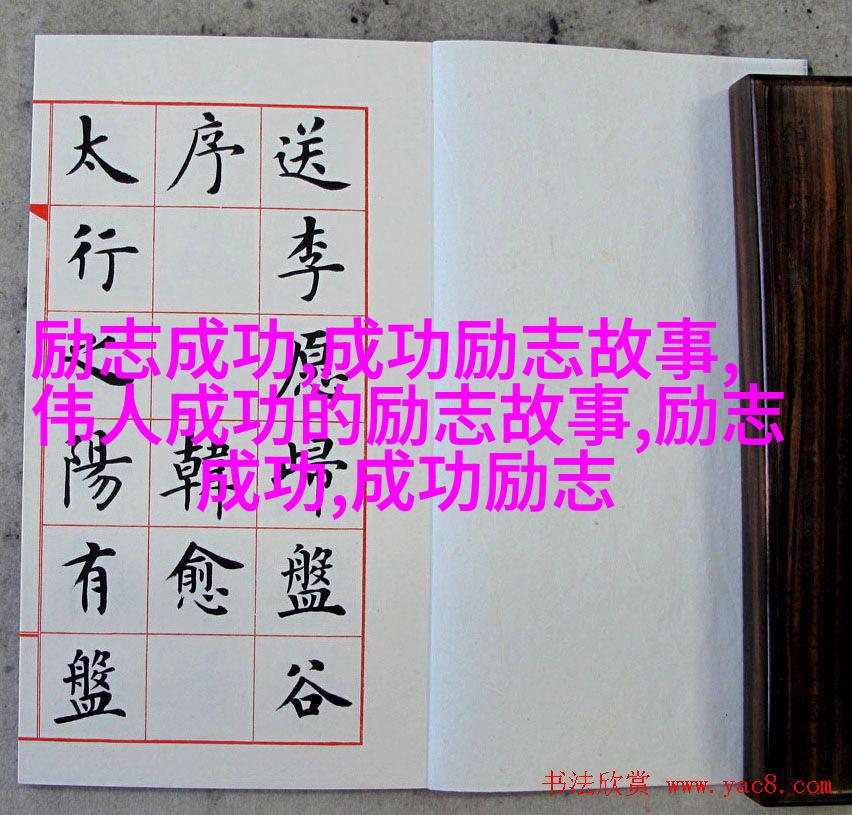 送李愿歸盤谷
序 韓愈
太行之陽有盤
励志成功,成功励志故事,
伟人成功的励志故事,励志
成功,成功励志
书法欣赏 www.yac8.com